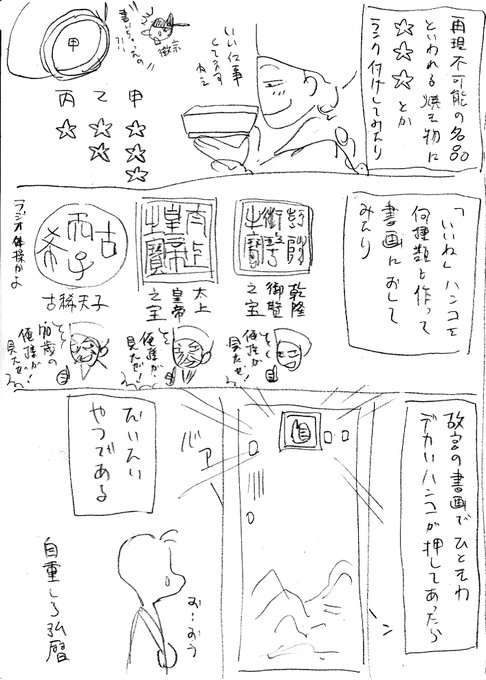 再現不可能の名品
といわれる焼き物に
☆☆☆とか
ランク付けしてみたり
いい仕事
してますねえ
徽宗
書いちゃうの
?!
甲
甲☆☆☆
乙☆☆
丙☆
「いいね」ハンコを
何種類も作って
書画におして
みたり
乾隆
御覧
之宝
太上
皇帝
之宝
古稀天子
ラジオ体操かよ
俺様が
見たぜ!
俺様が
見たぜ!
俺様が
見たぜ!
故宮の書画でひときわ
デカいハンコが押してあったら
バァン
だいたい
やつである
お…おう
自重しろ弘暦